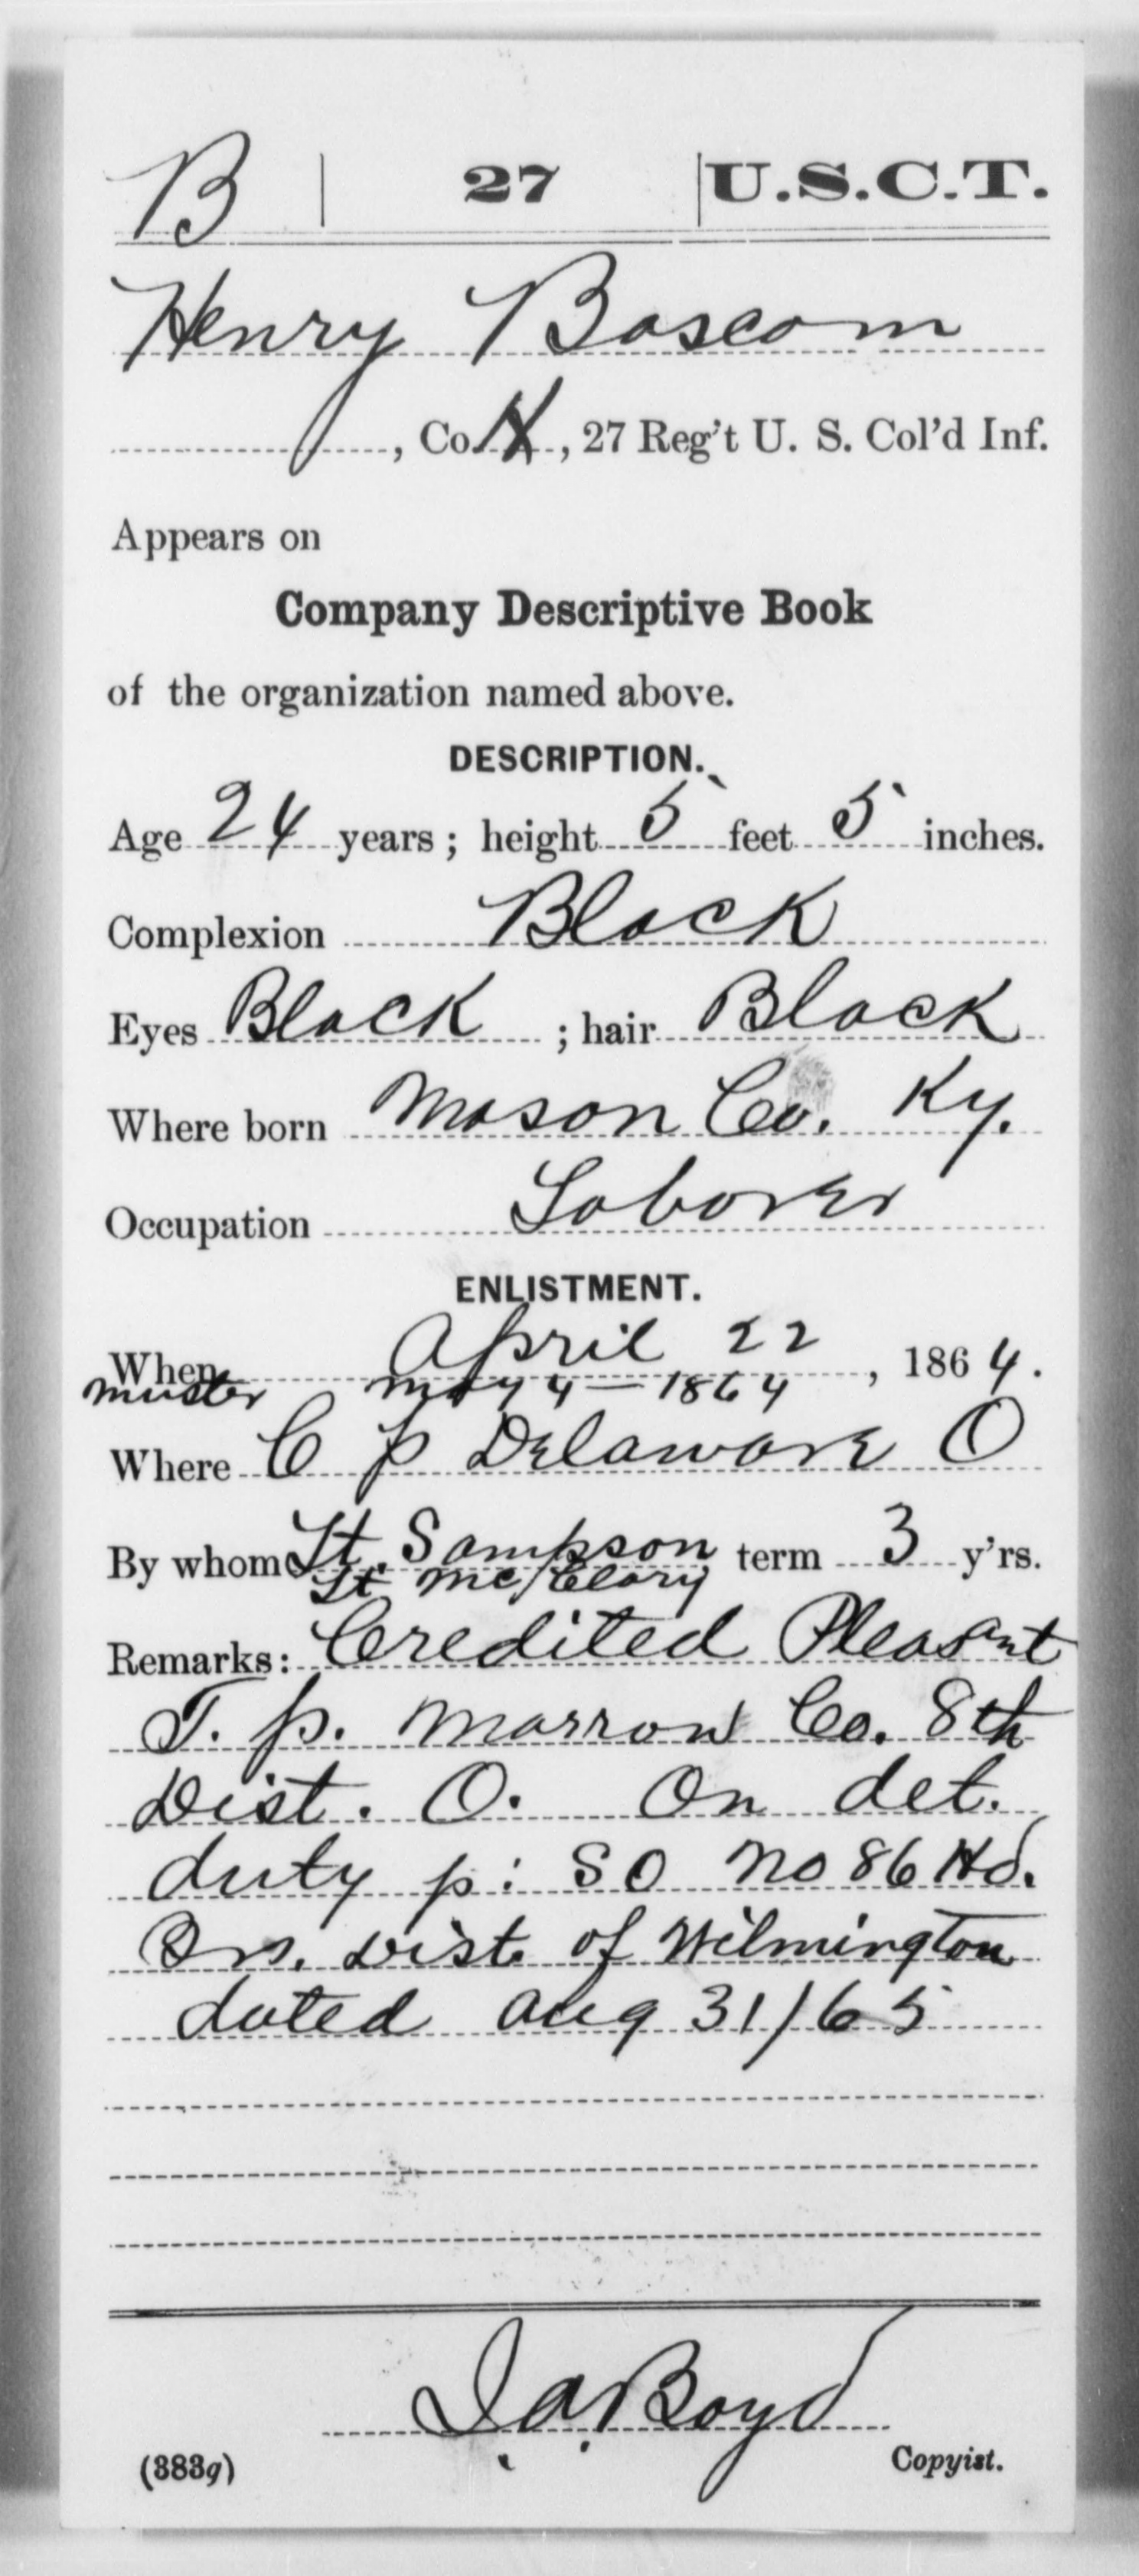 B | 27 | U.S.C.T.
Henry Bascom
, Co. H, 27 Reg't U. S. Col'd Inf.
Appears on
Company Descriptive Book
of the organization named above.
DESCRIPTION.
Age 24 years; height 5 feet 5 inches.
Complexion Black
Eyes Black ; hair Black
Where born Mason Co. Ky.
Occupation Laborer
ENLISTMENT.
When April 22, 1864.
muster may 4 - 1864
Where C p Delaware O
By whom Lt. Sampson term 3 y'rs.
Lt McCleary
Remarks: Credited Pleasant
T. p. Marrow Co. 8th
Dist. O. On det.
duty p: S O No 86 Hd.
Qrs. Dist. of Wilmington
dated aug 31/65
J. A. Boyd
(383g) Copyist.